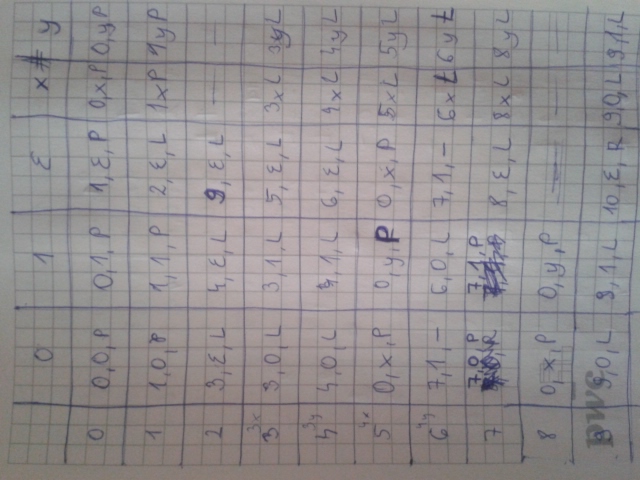 0 1 ε x # y
0 0,0,P 0,1,P 1,ε,P 0,x,P 0,y P
1 1,0,P 1,1,P 2,ε,L 1xP 1yP
2 3,ε,L 4,ε,L 9,ε,L — —
3 3x 3,0,L 3,1,L 5,ε,L 3xL 3yL
4 3y 4,0,L 4,1,L 6,ε,L 4xL 4yL
5 4x 0,x,P 0,y,P 0,x,P 5xL 5yL
6 4y 7,1,— 6,0,L 7,1,— 6xL 6yL
7 7,0,P 7,1,P 8,ε,L 8xL 8yL
8 0,x,P 0,y,P — — —
9 9,0,L 9,1,L 10,ε,R 9,0,L 9,1,L
pwε